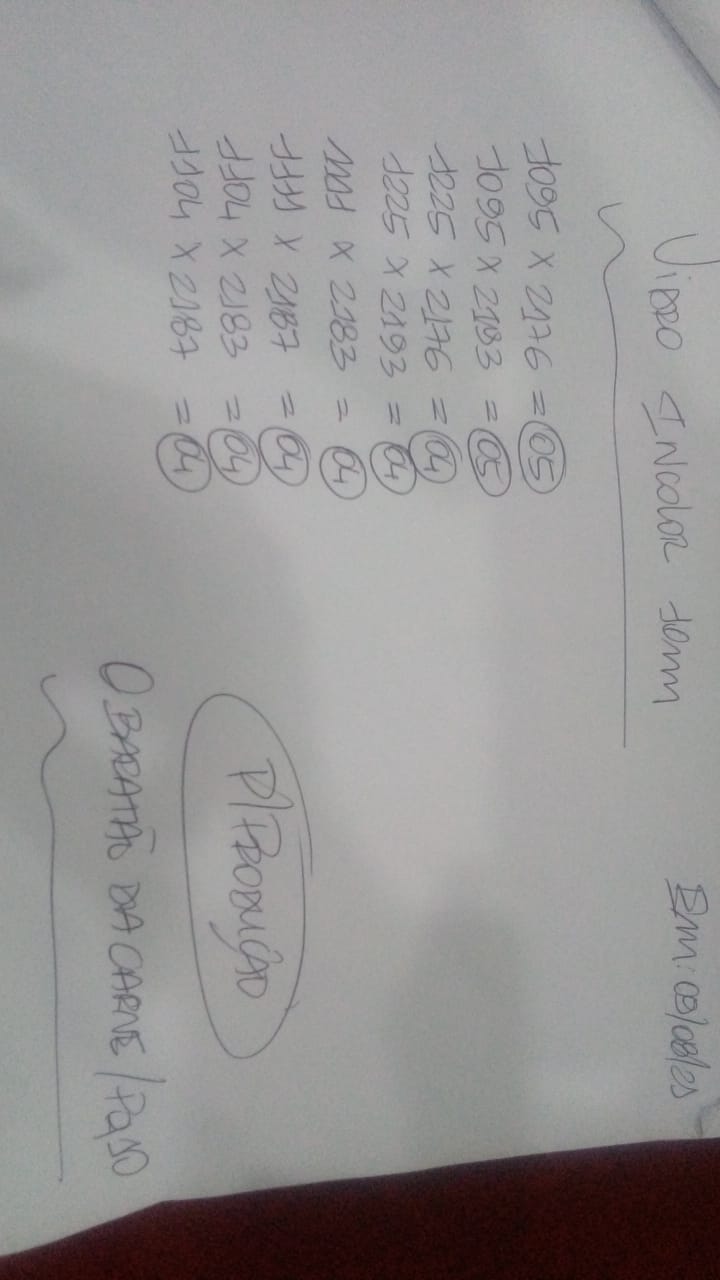 Vidro Incolor 10mm
Em: 08/08/25
1095 x 2176 = 05
1095 x 2183 = 05
1225 x 2176 = 04
1225 x 2193 = 04
1111 x 2183 = 04
1111 x 2187 = 04
1104 x 2183 = 04
1104 x 2187 = 04
P/ Produção
O BARATÃO DA CARNE /